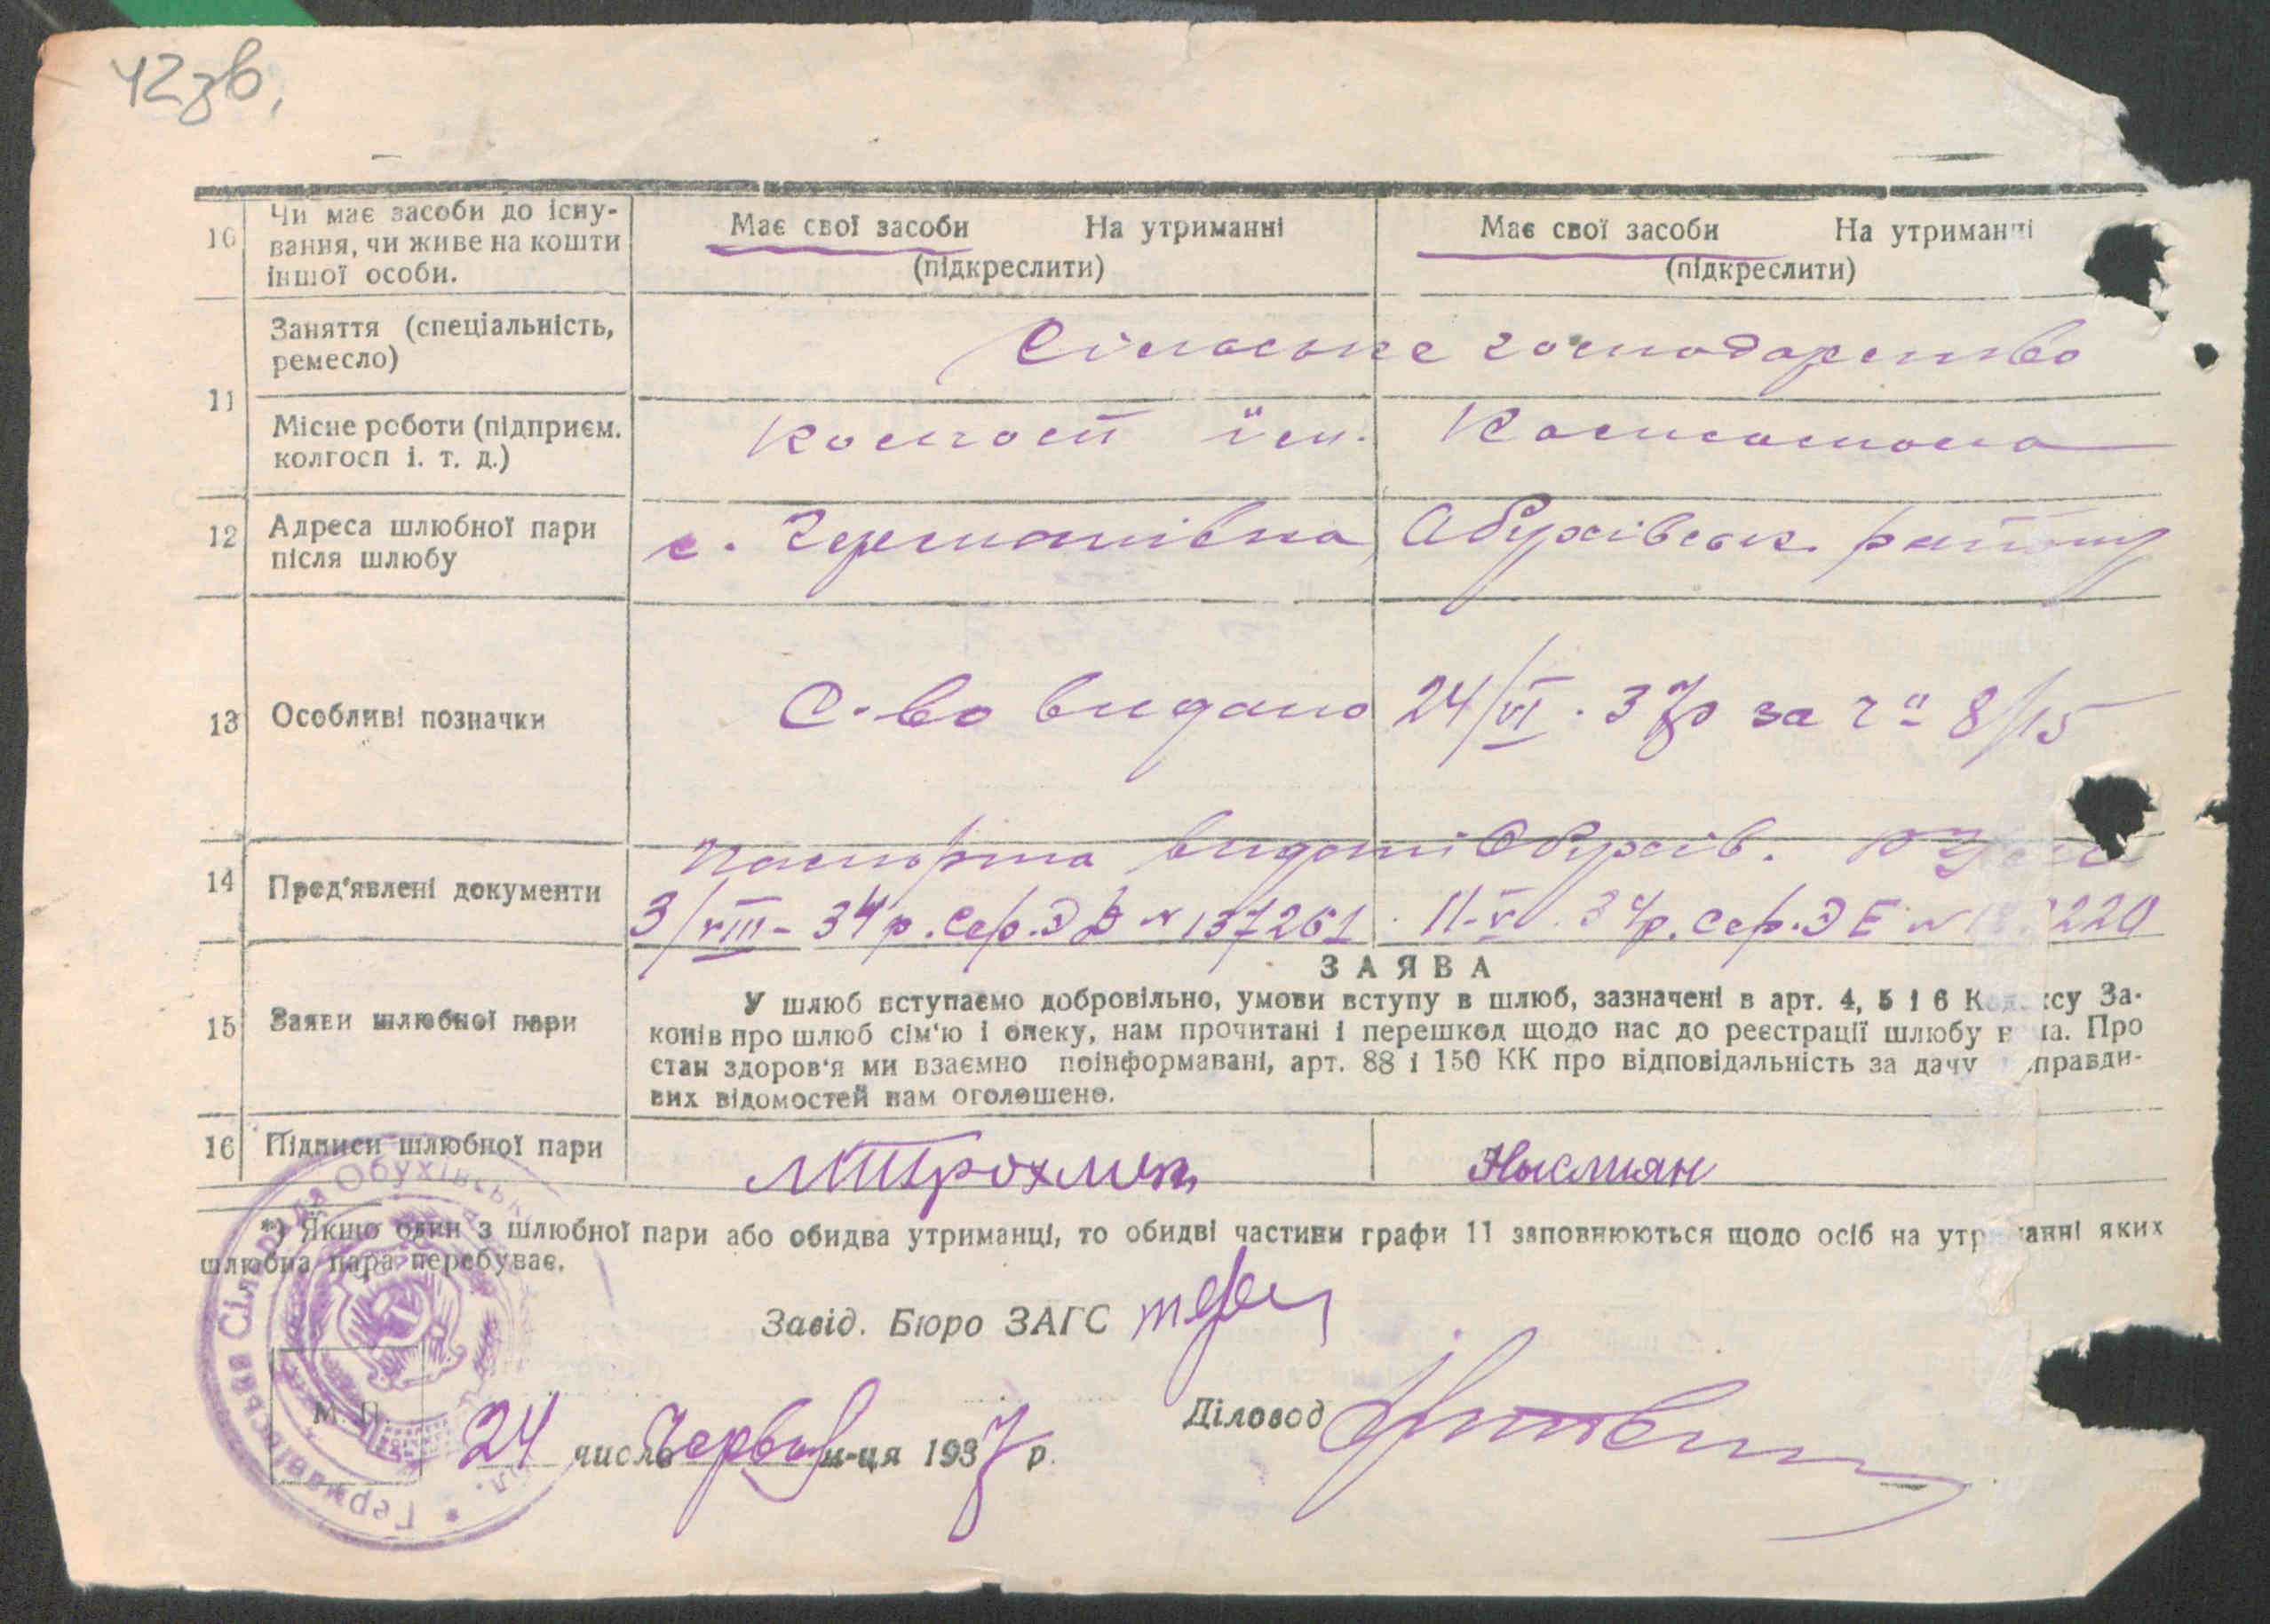 42зв,
10 Чи має засоби до існу-
вання, чи живе на кошти
іншої особи.
Має свої засоби На утриманні
(підкреслити)
Має свої засоби На утриманні
(підкреслити)
11 Заняття (специіальність,
ремесло)
Сільське господарство
Місце роботи (підприєм.
колгосп і. т. д.)
Колгосп ім.
12 Адреса шлюбної пари
після шлюбу
с. Германівка, Абухівськ. району
13 Особливі позначки
С-во видано 24/VI. 37р за № 8/15
14 Пред'явлені документи
Паспорта видані Обухів.
3/VIII-34р. сер. ЭВ № 137261. 34р. сер. ЭЕ № 220
15 Заяви шлюбної пари
ЗАЯВА
У шлюб вступаємо добровільно, умови вступу в шлюб, зазначені в арт. 4, 5 і 6 К ксу За-
конів про шлюб сім'ю і опеку, нам прочитані і перешкод щодо нас до реєстрації шлюбу н ма. Про
стан здоров'я ми взаємно поінформавані, арт. 88 і 150 КК про відповідальність за дачу правди-
вих відомостей нам оголошено.
16 Підписи шлюбної пари
*) Якщо один з шлюбної пари або обидва утриманці, то обидві частини графи 11 заповнюються щодо осіб на утр анні яких
шлюбна пара перебуває.
Завід. Бюро ЗАГС
Діловод
М. П.
24 число Червня м-ця 1937 р.
Германівська Сільрада Обухівськ